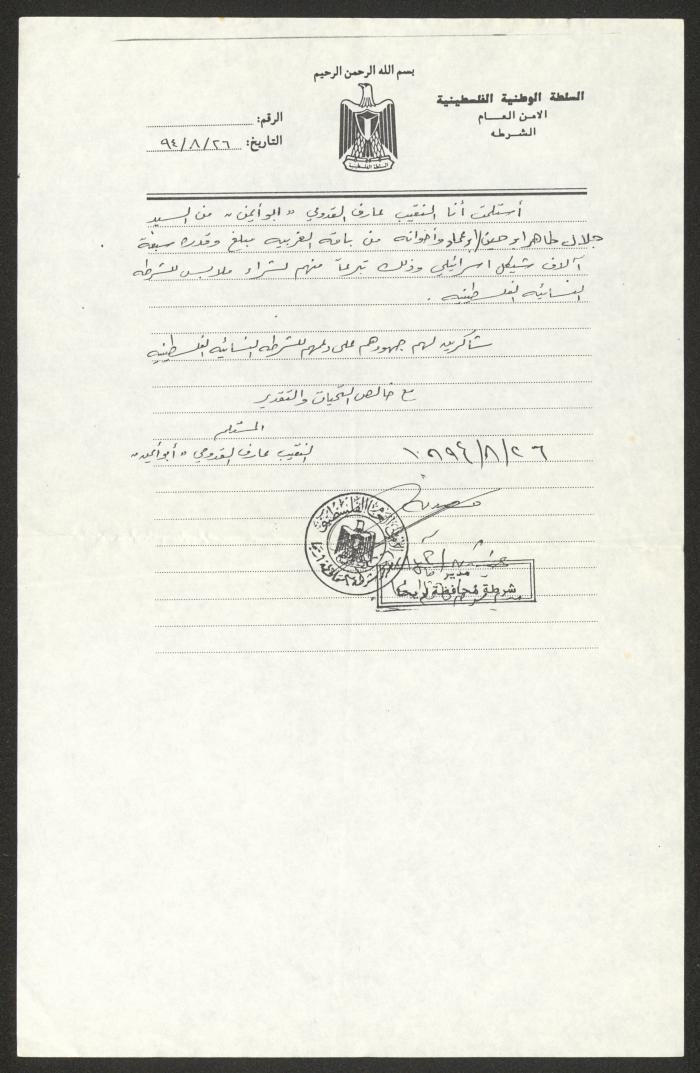 بسم الله الرحمن الرحيم
السلطة الوطنية الفلسطينية
الامن العام
الشرطه
الرقم:
التاريخ: ٩٤/٨/٢٦
السلطة الفلسطينية
أستلمت أنا النقيب عارف القدومي "ابو أيمن" من السيد
جلال طاهر ابو حسن / ابو عماد وأخوانه من باقه الغربيه مبلغ وقدره سبعة
آلاف شيكل اسرائيلي وذلك تبرعاً منهم لشراء ملابس للشرطه
النسائيه الفلسطينيه .
شاكرين لهم جهودهم على دعمهم للشرطه النسائيه الفلسطينيه
مع خالص التحيات والتقدير
المستلم
النقيب عارف القدومي "أبو أيمن"
١٩٩٤/٨/٢٦
مدير
شرطة محافظة أريحا